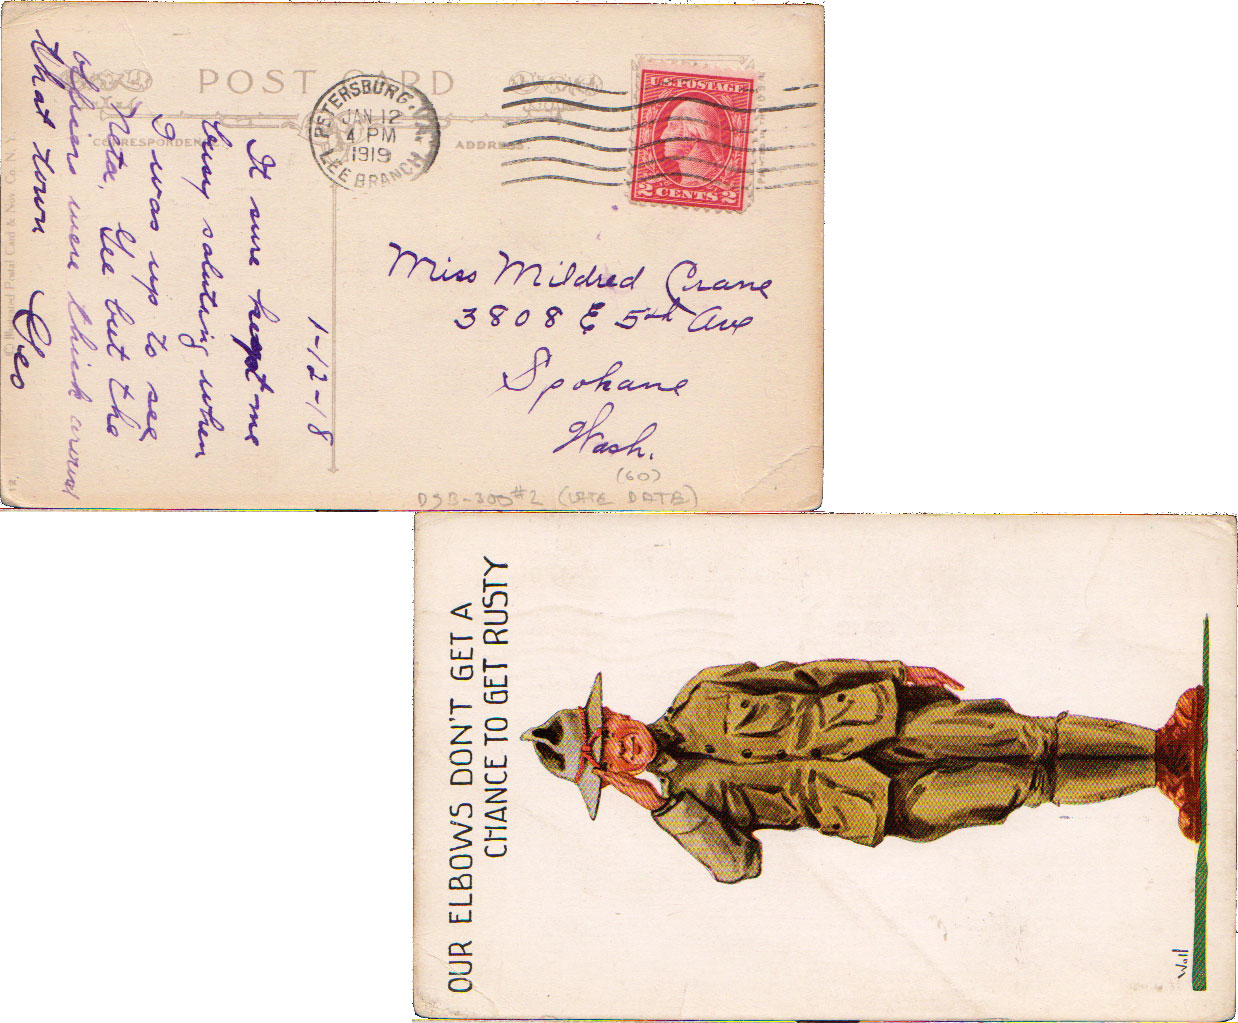 POST CARD
CORRESPONDENCE
ADDRESS
PETERSBURG, VA.
JAN 12
4 PM
1919
LEE BRANCH
U.S. POSTAGE
2 CENTS 2
1-12-18
It sure kept me
busy saluting when
I was up to see
Neta, Gee but the
officers were thick around
that town Geo
Miss Mildred Crane
3808 E 5th Ave
Spokane
Wash.
(60)
DSB-300 #2 (LATE DATE)
© Illustrated Postal Card & Nov. Co. N.Y.
12.
OUR ELBOWS DON'T GET A
CHANCE TO GET RUSTY
Wall